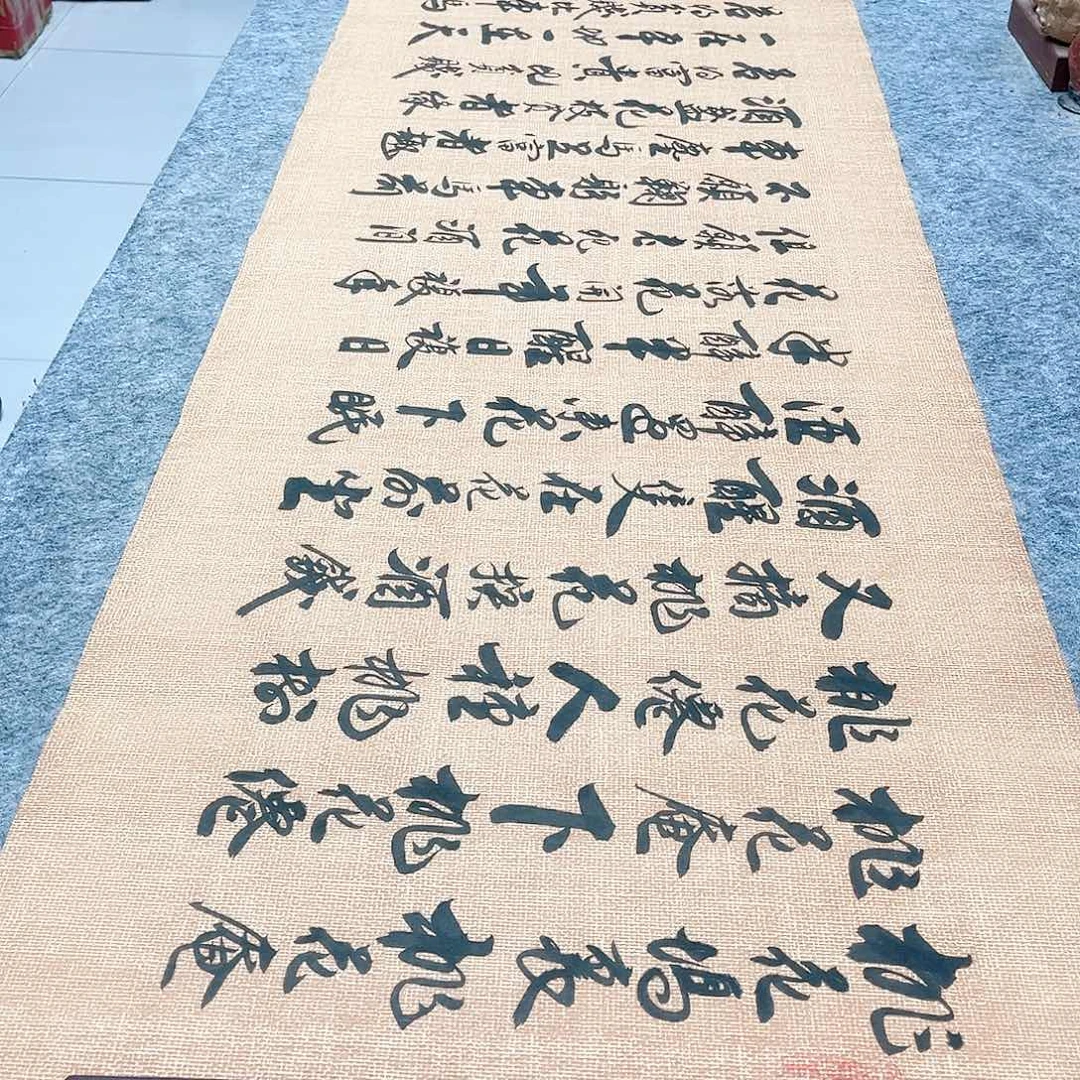 桃花塢裏桃花庵
桃花庵下桃花僊
桃花僊人種桃樹
又摘桃花換酒錢
酒醒隻在花前坐
酒醉還來花下眠
半醉半醒日復日
花落花開年復年
但願老死花酒間
不願鞠躬車馬前
車塵馬足富者趣
酒盞花枝貧者緣
若將富貴比貧賤
一在平地一在天
若將貧賤比車馬